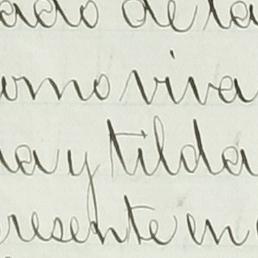 ado de la
omo viva
hay tilda
presente en